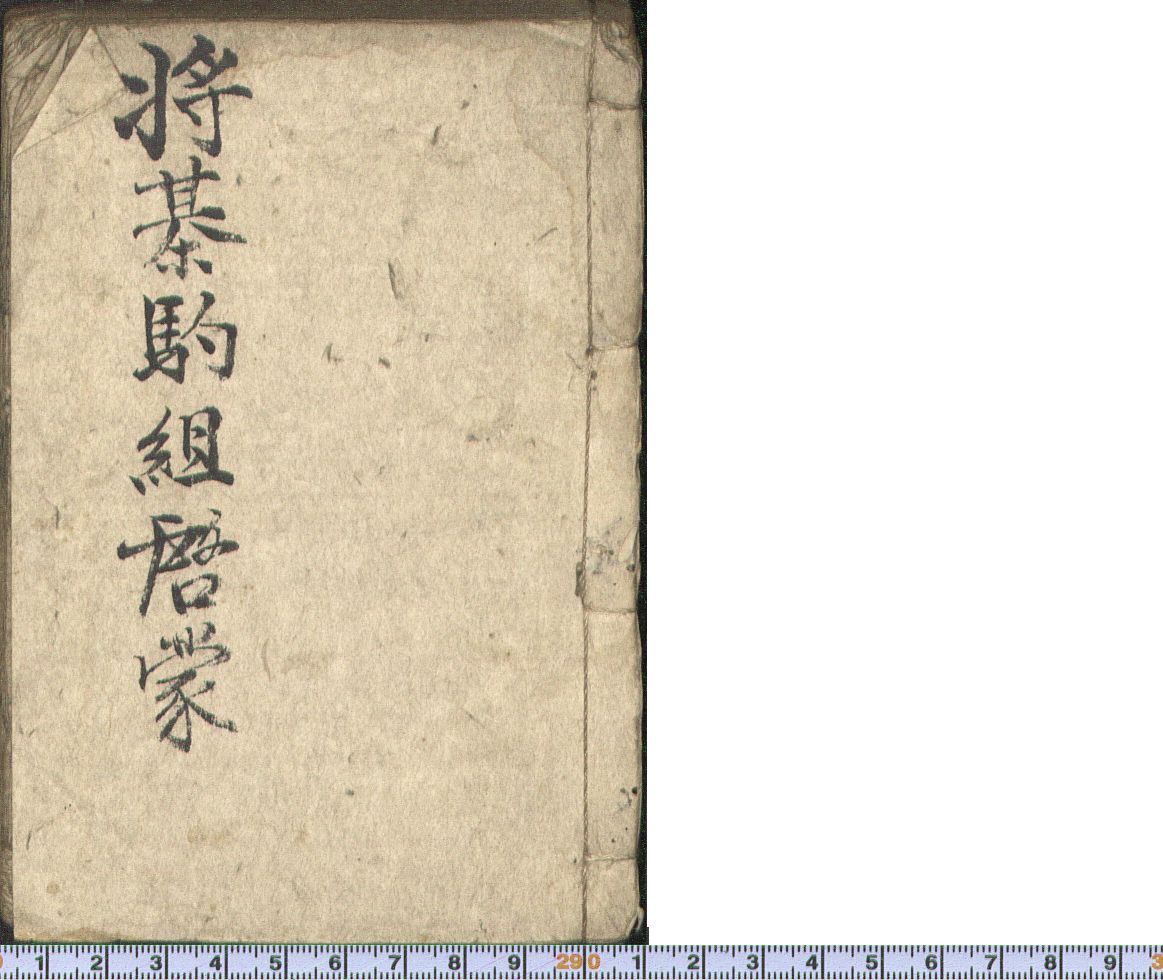 将棊駒組啓蒙
0 1 2 3 4 5 6 7 8 9 290 1 2 3 4 5 6 7 8 9 3